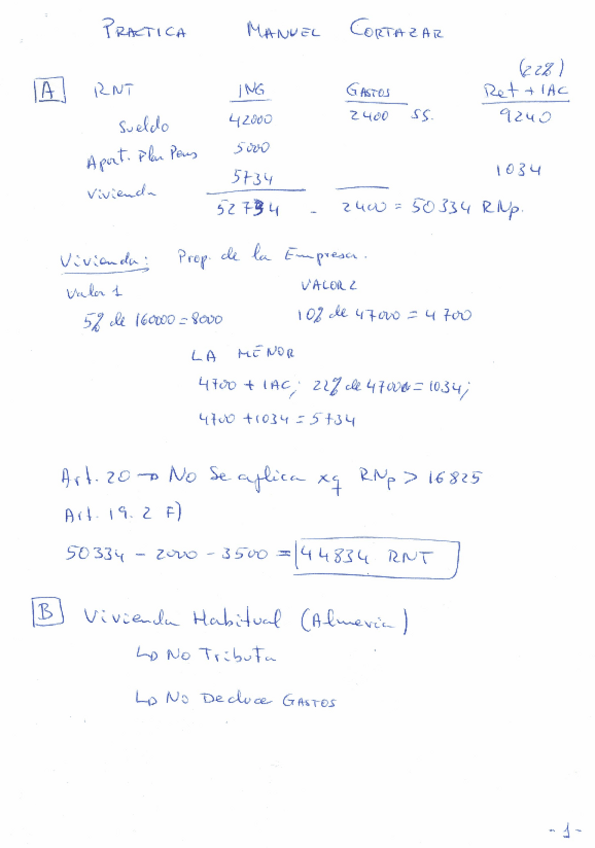 PRACTICA MANUEL CORTAZAR
(22%)
A RNT ING GASTOS Ret + IAC
Sueldo 42000 2400 SS. 9240
Aport. Plan Pens 5000
Vivienda 5734 1034
52734 - 2400 = 50334 RNp.
Vivienda: Prop. de la Empresa.
Valor 1 VALOR 2
5% de 160000 = 8000 10% de 47000 = 4700
LA MENOR
4700 + IAC; 22% de 4700 = 1034;
4700 + 1034 = 5734
Art. 20 → No Se aplica xq RNp > 16825
Art. 19. 2 F)
50334 - 2000 - 3500 = 44834 RNT
B Vivienda Habitual (Almeria)
↳ No Tributa
↳ No Deduce GASTOS
- 1 -